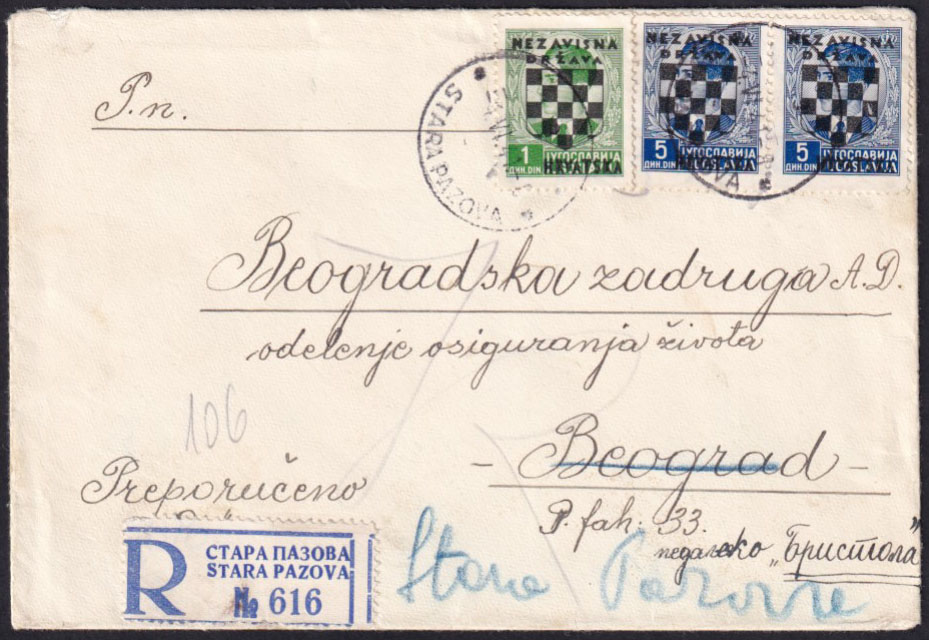 NEZAVISNA
DRŽAVA
1 ЈУГОСЛАВИЈА
ДИН. DIN
HRVATSKA
NEZAVISNA
DRŽAVA
5 ЈУГОСЛАВИЈА
ДИН. DIN
NEZAVISNA
DRŽAVA
5 ЈУГОСЛАВИЈА
ДИН. DIN
STARA PAZOVA
P. n.
Beogradska zadruga A.D.
odelenje osiguranja života
106
- Beograd -
Preporučeno
P. fah: 33.
„Бристола“
Stara Pazova
R СТАРА ПАЗОВА
STARA PAZOVA
№ 616